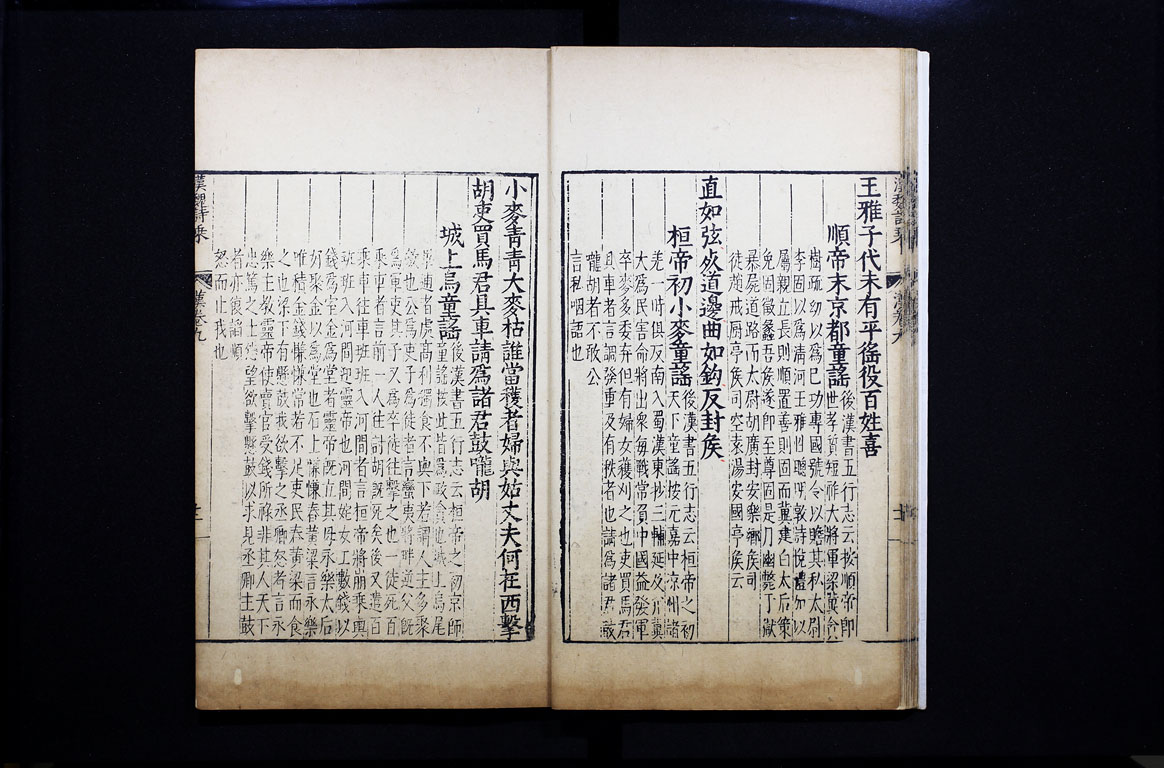 漢魏詩乘
漢卷九
王雅子代未有平徭役百姓喜
順帝末京都童謠
後漢書五行志云按順帝即
世孝質短祚大將軍梁冀貪
樹疏幼以為已功專國號令以贍其私太尉
李固以為清河王雅性聰明敦詩悅禮加以
屬親立長則順置善則固而冀建白太后策
免固徵蠡吾侯遂即至尊固是日幽斃于獄
暴屍道路而太尉胡廣封安樂鄉侯司
徒趙戒厨亭侯司空袁湯安國亭侯云
直如弦死道邊曲如鈎反封侯
桓帝初小麥童謠
後漢書五行志云桓帝之初
天下童謠按元嘉中凉州諸
羌一時俱反南入蜀漢東抄三輔延及并冀
大為民害命將出衆每戰常負中國益發軍
卒麥多委弃但有婦女獲刈之也吏買馬君
具車者言調發重及有秩者也請為諸君鼓
嚨胡者不敢公
言私咽語也
小麥青青大麥枯誰當穫者婦與姑丈夫何在西擊
胡吏買馬君具車請為諸君鼓嚨胡
城上烏童謠
後漢書五行志云桓帝之初京師
童謠按此皆為政貪也城上烏尾
畢逋者處高利獨食不與下若謂人主多聚
斂也公為吏子為徒者言蠻夷將畔逆父既
為軍吏其子又為卒徒往擊之也一徒死百
乘車者言前一人往討胡既死矣後又遣百
乘車往車班班入河間者言桓帝將崩乘輿
班班入河間迎靈帝也河間姹女工數錢以
錢為室金為堂者靈帝既立其母永樂太后
好聚金以為堂也石上慊慊舂黃粱言永樂
唯積金錢慊慊常若不足吏民舂黃粱而食
之也梁下有懸鼓我欲擊之丞卿怒者言永
樂主教靈帝使賣官受錢所祿非其人天下
忠篤之士怨望欲擊懸鼓以求見丞卿主鼓
者亦復諂順
怒而止我也
漢魏詩乘
漢卷九